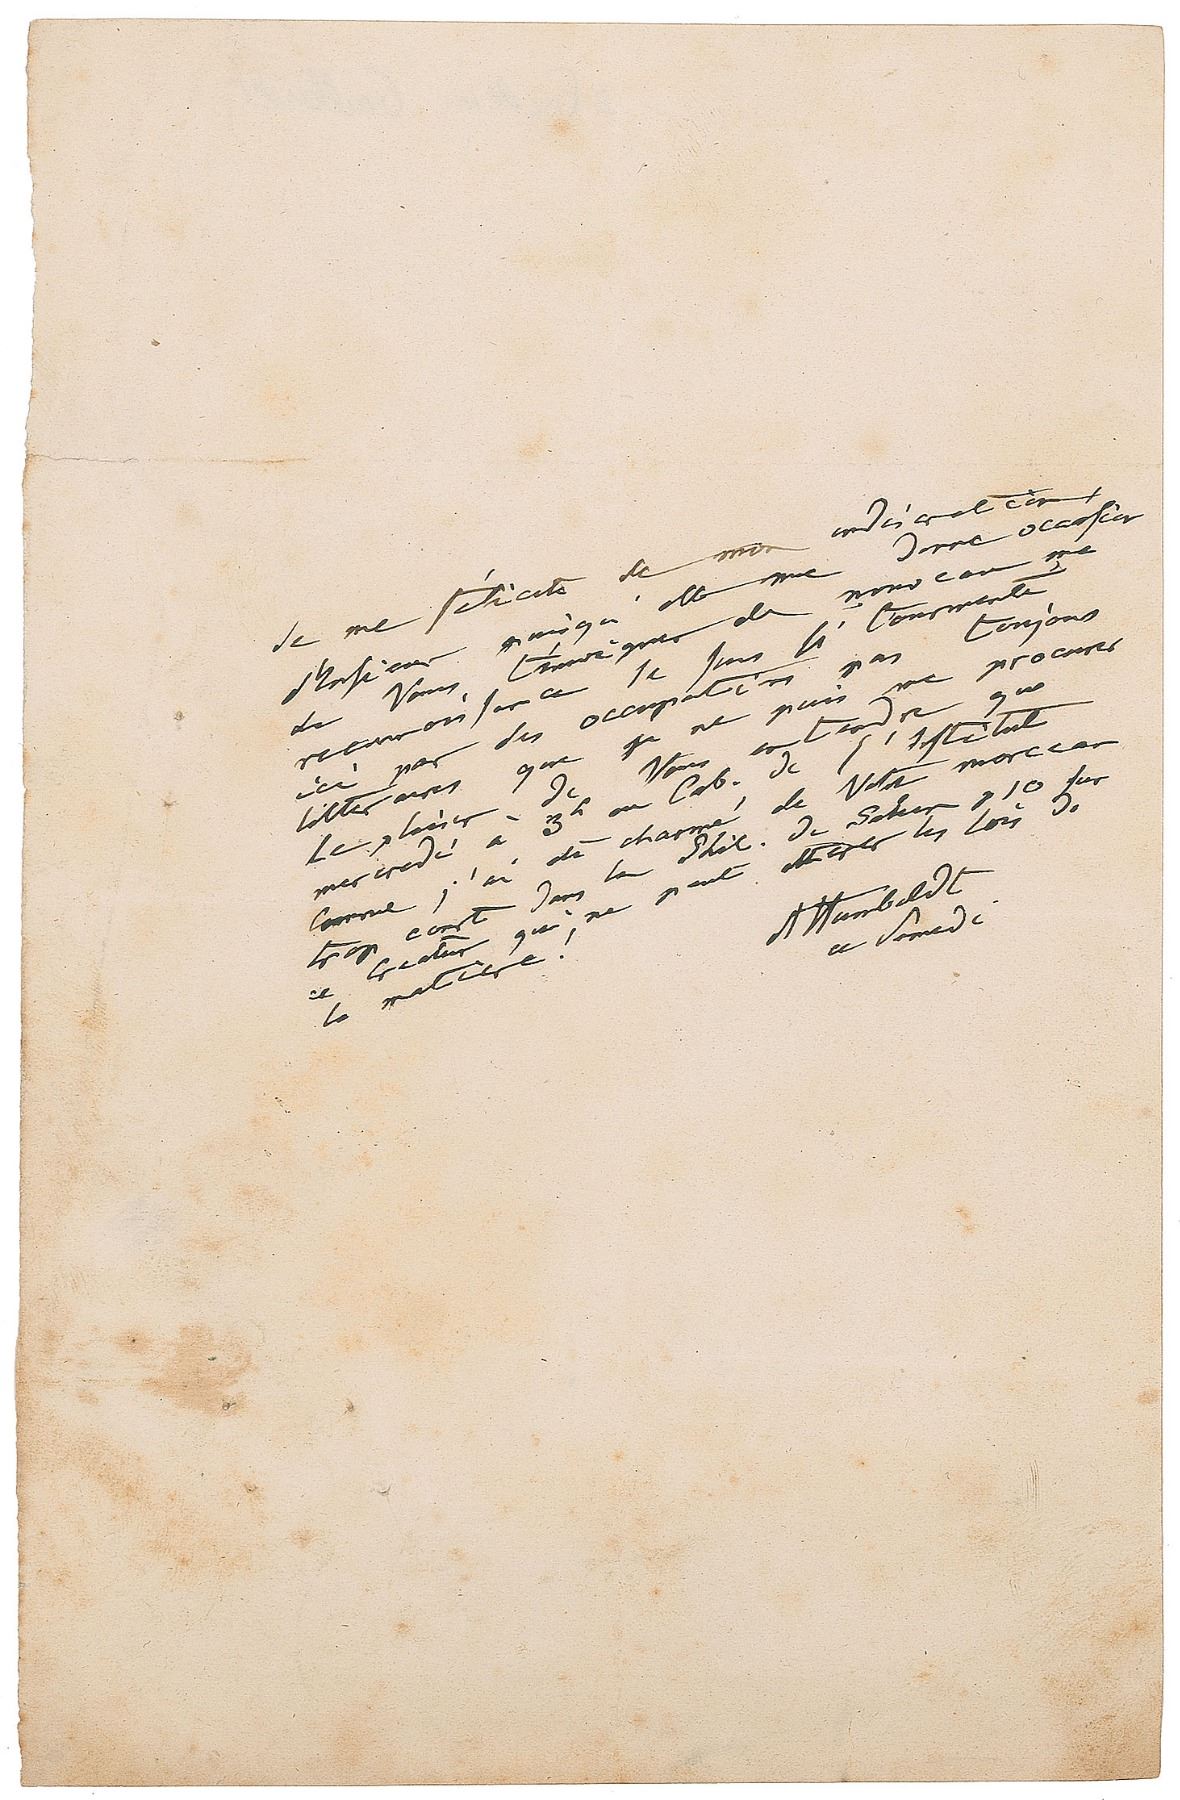 Je me félicite de mon indiscrétion
puisqu'elle me donne occasion
de Vous témoigner de nouveau ma
reconnaissance Je suis si tourmenté
ici par des occupations pas toujours
littéraires que je ne puis me procurer
Le plaisir de Vous entendre que
mercredi à 3h au Cab. de l'Institut
Comme j'ai été charmé de Votre morceau
trop court dans la Phil. de p 10 sur
ce Créateur qui ne peut altérer les lois de
la matière!
AHumboldt
ce Samedi